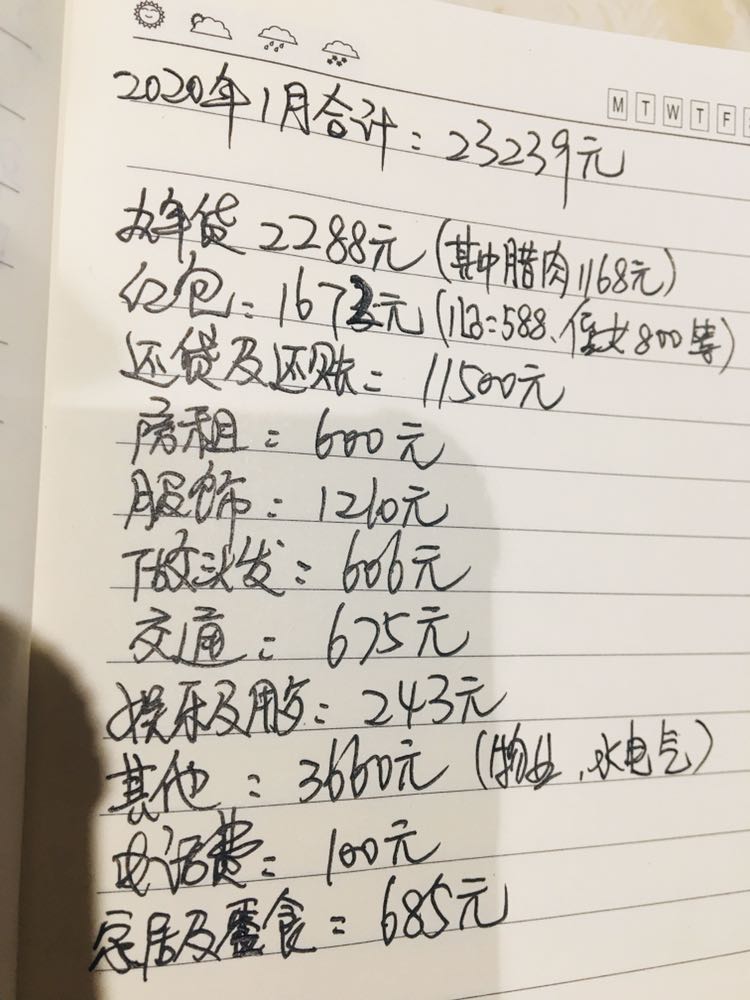 M T W T F
2020年1月合计：23239元
办年货2288元(其中腊肉1168元)
红包：1672元(旧=588、侄女800等)
还贷及还账：11500元
房租：600元
服饰：1210元
做头发：606元
交通：675元
娱乐及用品：243元
其他：3660元(物业,水电气)
电话费：100元
家居及零食：685元